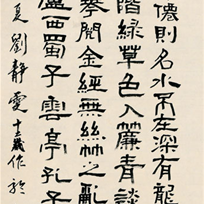 僊則名水不在深有龍
階綠草色入簾青談
琴閱金經無絲竹之亂
廬西蜀子雲亭孔子
夏劉靜雯歲作於